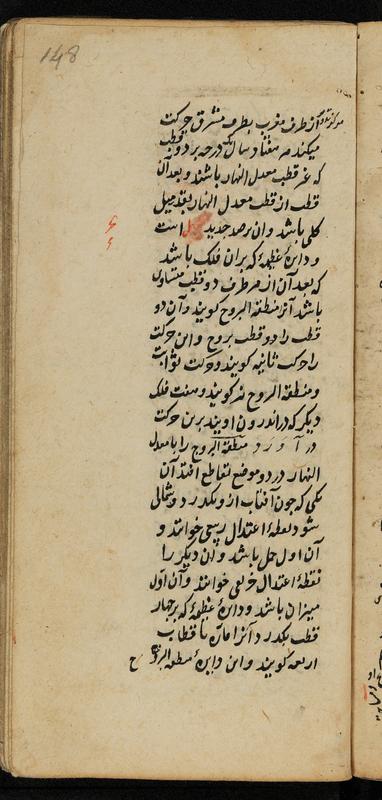 148
مرکز عالم از طرف مغرب بطرف مشرق حرکت
میکند هر هفتاد سال یکدرجه بر دو قطب
که غیر قطب معدل النهار باشند و بعد آن
قطب از قطب معدل النهار بقدر میل
کلی باشد و ان برصد جدید است
و دایرهٔ عظیمه که بران فلک باشد
که بعد آن از هر طرف دو قطب متساوی
باشد آنرا منطقة البروج کویند و آن دو
قطب را دو قطب بروج و این حرکت
را حرکت ثانیه کویند و حرکت ثوابت
و منطقة البروج نیز کویند و هفت فلک
دیکر که در اندرون اویند برین حرکت
در آورد منطقة البروج را با معدل
النهار در دو موضع تقاطع افتد آن
یکی که چون آفتاب ازو بکذرد و شمالی
شود نقطهٔ اعتدال ربیعی خوانند و
آن اول حمل باشد و آن دیکر را
نقطهٔ اعتدال خریفی خوانند و آن اول
میزان باشد و دایرهٔ عظیمه که بر چهار
قطب بکذرد آنرا مارّه باقطاب
اربعه کویند و این دایرهٔ منطقه البروج